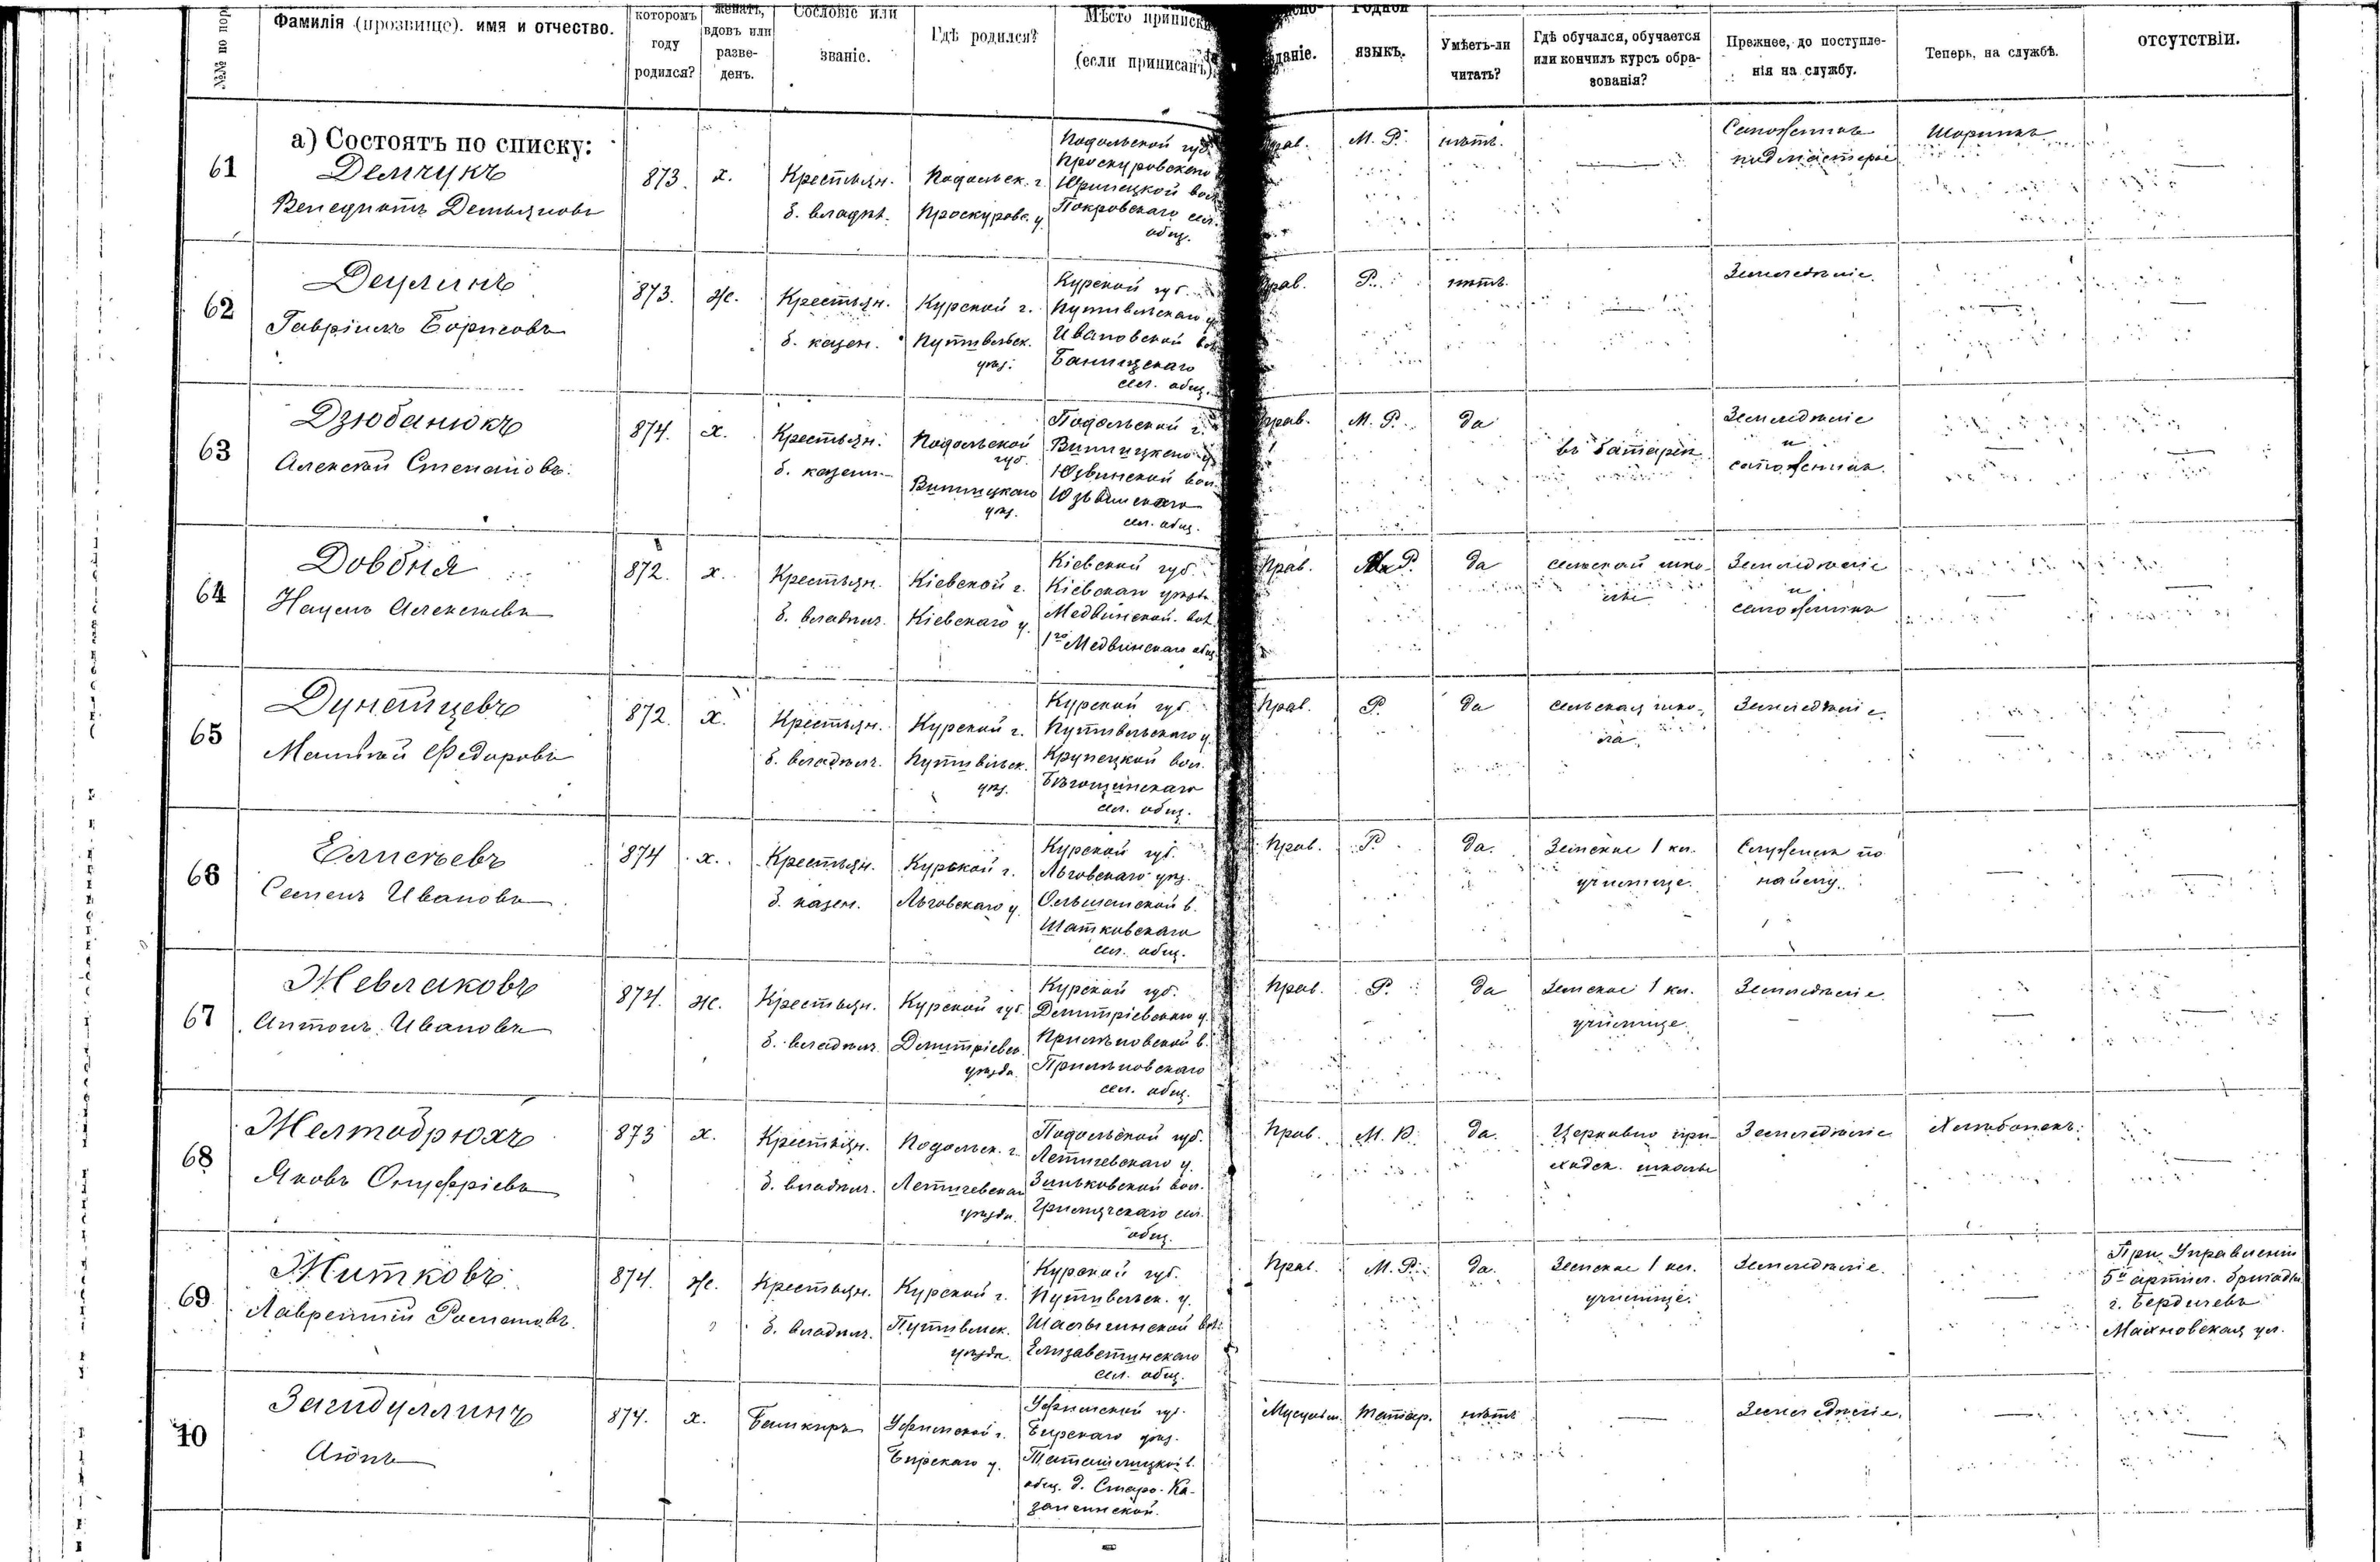 №№ по пор
Фамилія (прозвище). имя и отчество.
которомъ году родился?
женатъ, вдовъ или разве-денъ.
Сословіе или званіе.
Гдѣ родился?
Мѣсто приписки (если приписанъ)?
даніе.
родной языкъ.
Умѣетъ-ли читать?
Гдѣ обучался, обучается или кончилъ курсъ обра-зованія?
Прежнее, до поступле-нія на службу.
Теперь, на службѣ.
отсутствіи.
а) Состоятъ по списку:
61
Демчукъ
Венедиктъ Демьяновъ
873.
х.
Крестьян.
б. владѣл.
Подольск. г.
Проскуровс. у.
Подольской губ.
Проскуровскаго
Юринецкой вол.
Покровскаго сел.
общ.
прав.
М. Р.
нѣтъ.
Сапожникъ
подмастерье
Шорникъ
62
Гавріилъ Борисовъ
873.
Ж.
Крестьян.
б. казен.
Курской г.
Путивльск.
уѣз.
Курской губ.
Путивльскаго у.
Ивановской вол.
Баницскаго
сел. общ.
прав.
Р.
нѣтъ.
Земледѣліе.
63
Дзюбанюкъ
Алексѣй Степановъ.
874.
х.
Крестьян.
б. казенн.
Подольской
губ.
Винницкаго
уѣз.
Подольской г.
Винницкаго у.
Юзвинской вол.
Юзвинскаго
сел. общ.
прав.
М. Р.
да
въ батареѣ
Земледѣліе
и
сапожникъ.
64
Довбня
Алексѣевъ
872.
х.
Крестьян.
б. владѣльч.
Кіевской г.
Кіевскаго у.
Кіевской губ.
Кіевскаго уѣзда
Медвинской вол.
1го Медвинскаго общ.
Прав.
М. Р.
да
сельской шко-
лѣ
Земледѣліе
и
сапожникъ
65
Матвѣй Федоровъ
872.
х.
Крестьян.
б. владѣльч.
Курской г.
Путивльск.
уѣз.
Курской губ.
Путивльскаго у.
Крупецкой вол.
сел. общ.
Прав.
Р.
да
сельская шко-
ла
Земледѣліе.
66
Елисѣевъ
Семенъ Ивановъ
874
х.
Крестьян.
б. казен.
Курской г.
Льговскаго у.
Курской губ.
Льговскаго уѣз.
Ольшанской в.
Шатковскаго
сел. общ.
Прав.
Р
да.
Земское 1 кл.
училище.
Служилъ по
найму.
67
Жевлаковъ
Антонъ Ивановъ
874.
Ж.
Крестьян.
б. владѣльч.
Курской губ.
Димитріевск.
уѣзда.
Курской губ.
Димитріевскаго у.
сел. общ.
Прав.
Р.
да
Земское 1 кл.
училище.
Земледѣліе.
68
Желтобрюхъ
Яковъ Онуфріевъ
873
х.
Крестьян.
б. владѣльч.
Подольск. г.
Летичевскаго
уѣзда.
Подольской губ.
Летичевскаго у.
Зиньковской вол.
сел.
общ.
Прав.
М. Р.
да.
Церковно при-
ходск. школы
Земледѣліе
Хлѣбопекъ.
69
Житковъ
Лаврентій Романовъ.
874.
Ж.
Крестьян.
б. владѣльч.
Курской г.
Путивльск.
уѣзда.
Курской губ.
Путивльск. у.
Шалыгинской вол.
Елизаветинскаго
сел. общ.
Прав.
М. Р.
да.
Земское 1 кл.
училище.
Земледѣліе.
При Управленіи
5й артил. бригады
г. Бердичевъ
Махновская ул.
70
Загидуллинъ
Аюпъ
874.
х.
Башкиръ
Уфимской г.
Бирскаго у.
Уфимской губ.
Бирскаго уѣз.
общ. д. Старо-Ка-
занчинской.
Мусульм.
Татар.
нѣтъ
Земледѣліе.